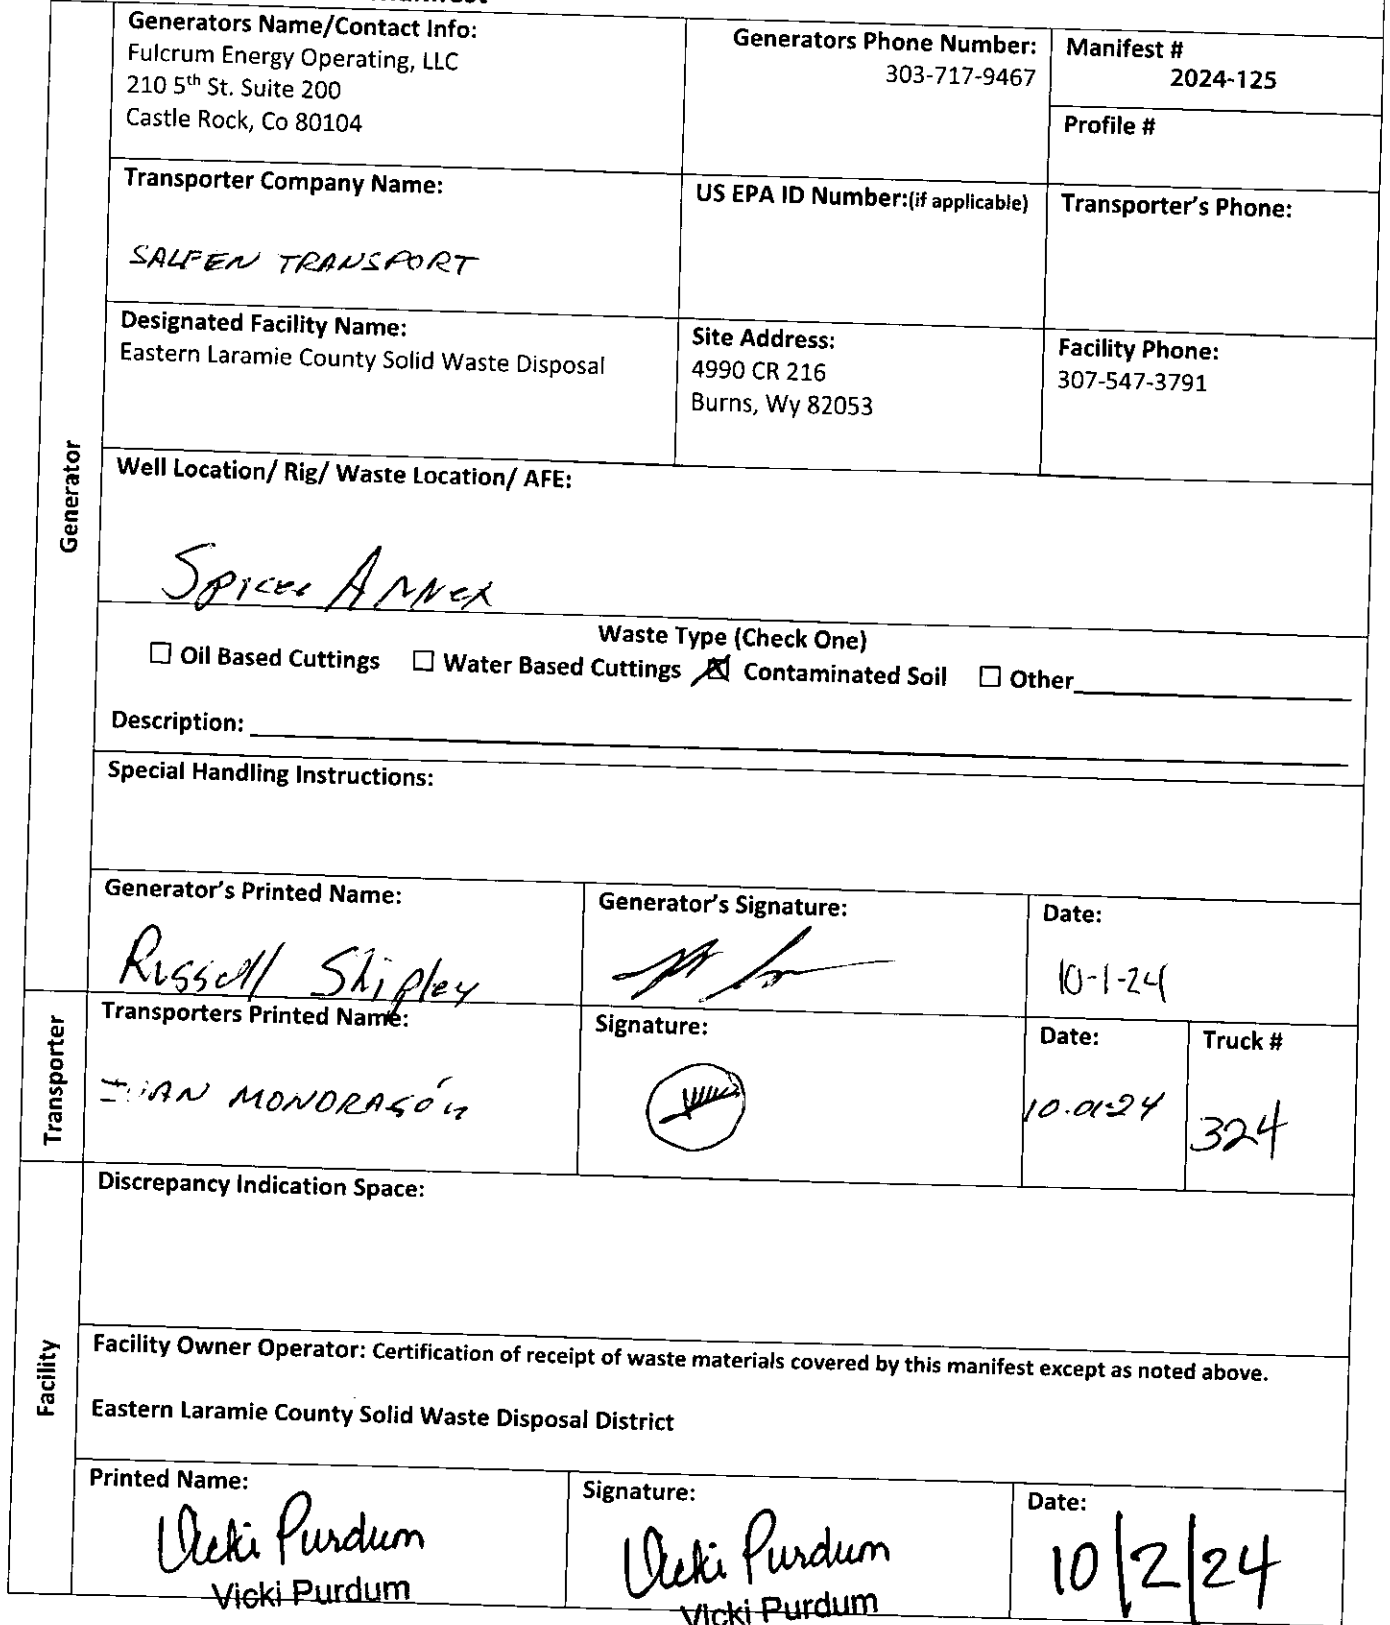 Generators Name/Contact Info:
Fulcrum Energy Operating, LLC
210 5th St. Suite 200
Castle Rock, Co 80104
Generators Phone Number:
303-717-9467
Manifest #
2024-125
Profile #
Transporter Company Name:
SALFEN TRANSPORT
US EPA ID Number:(if applicable)
Transporter's Phone:
Designated Facility Name:
Eastern Laramie County Solid Waste Disposal
Site Address:
4990 CR 216
Burns, Wy 82053
Facility Phone:
307-547-3791
Generator
Well Location/ Rig/ Waste Location/ AFE:
Annex
Waste Type (Check One)
☐ Oil Based Cuttings ☐ Water Based Cuttings ☒ Contaminated Soil ☐ Other
Description:
Special Handling Instructions:
Generator's Printed Name:
Russell Shipley
Generator's Signature:
Date:
10-1-24
Transporter
Transporters Printed Name:
MONDRAGÓN
Signature:
Date:
10.01.24
Truck #
324
Facility
Discrepancy Indication Space:
Facility Owner Operator: Certification of receipt of waste materials covered by this manifest except as noted above.
Eastern Laramie County Solid Waste Disposal District
Printed Name:
Vicki Purdum
Vicki Purdum
Signature:
Vicki Purdum
Vicki Purdum
Date:
10/2/24